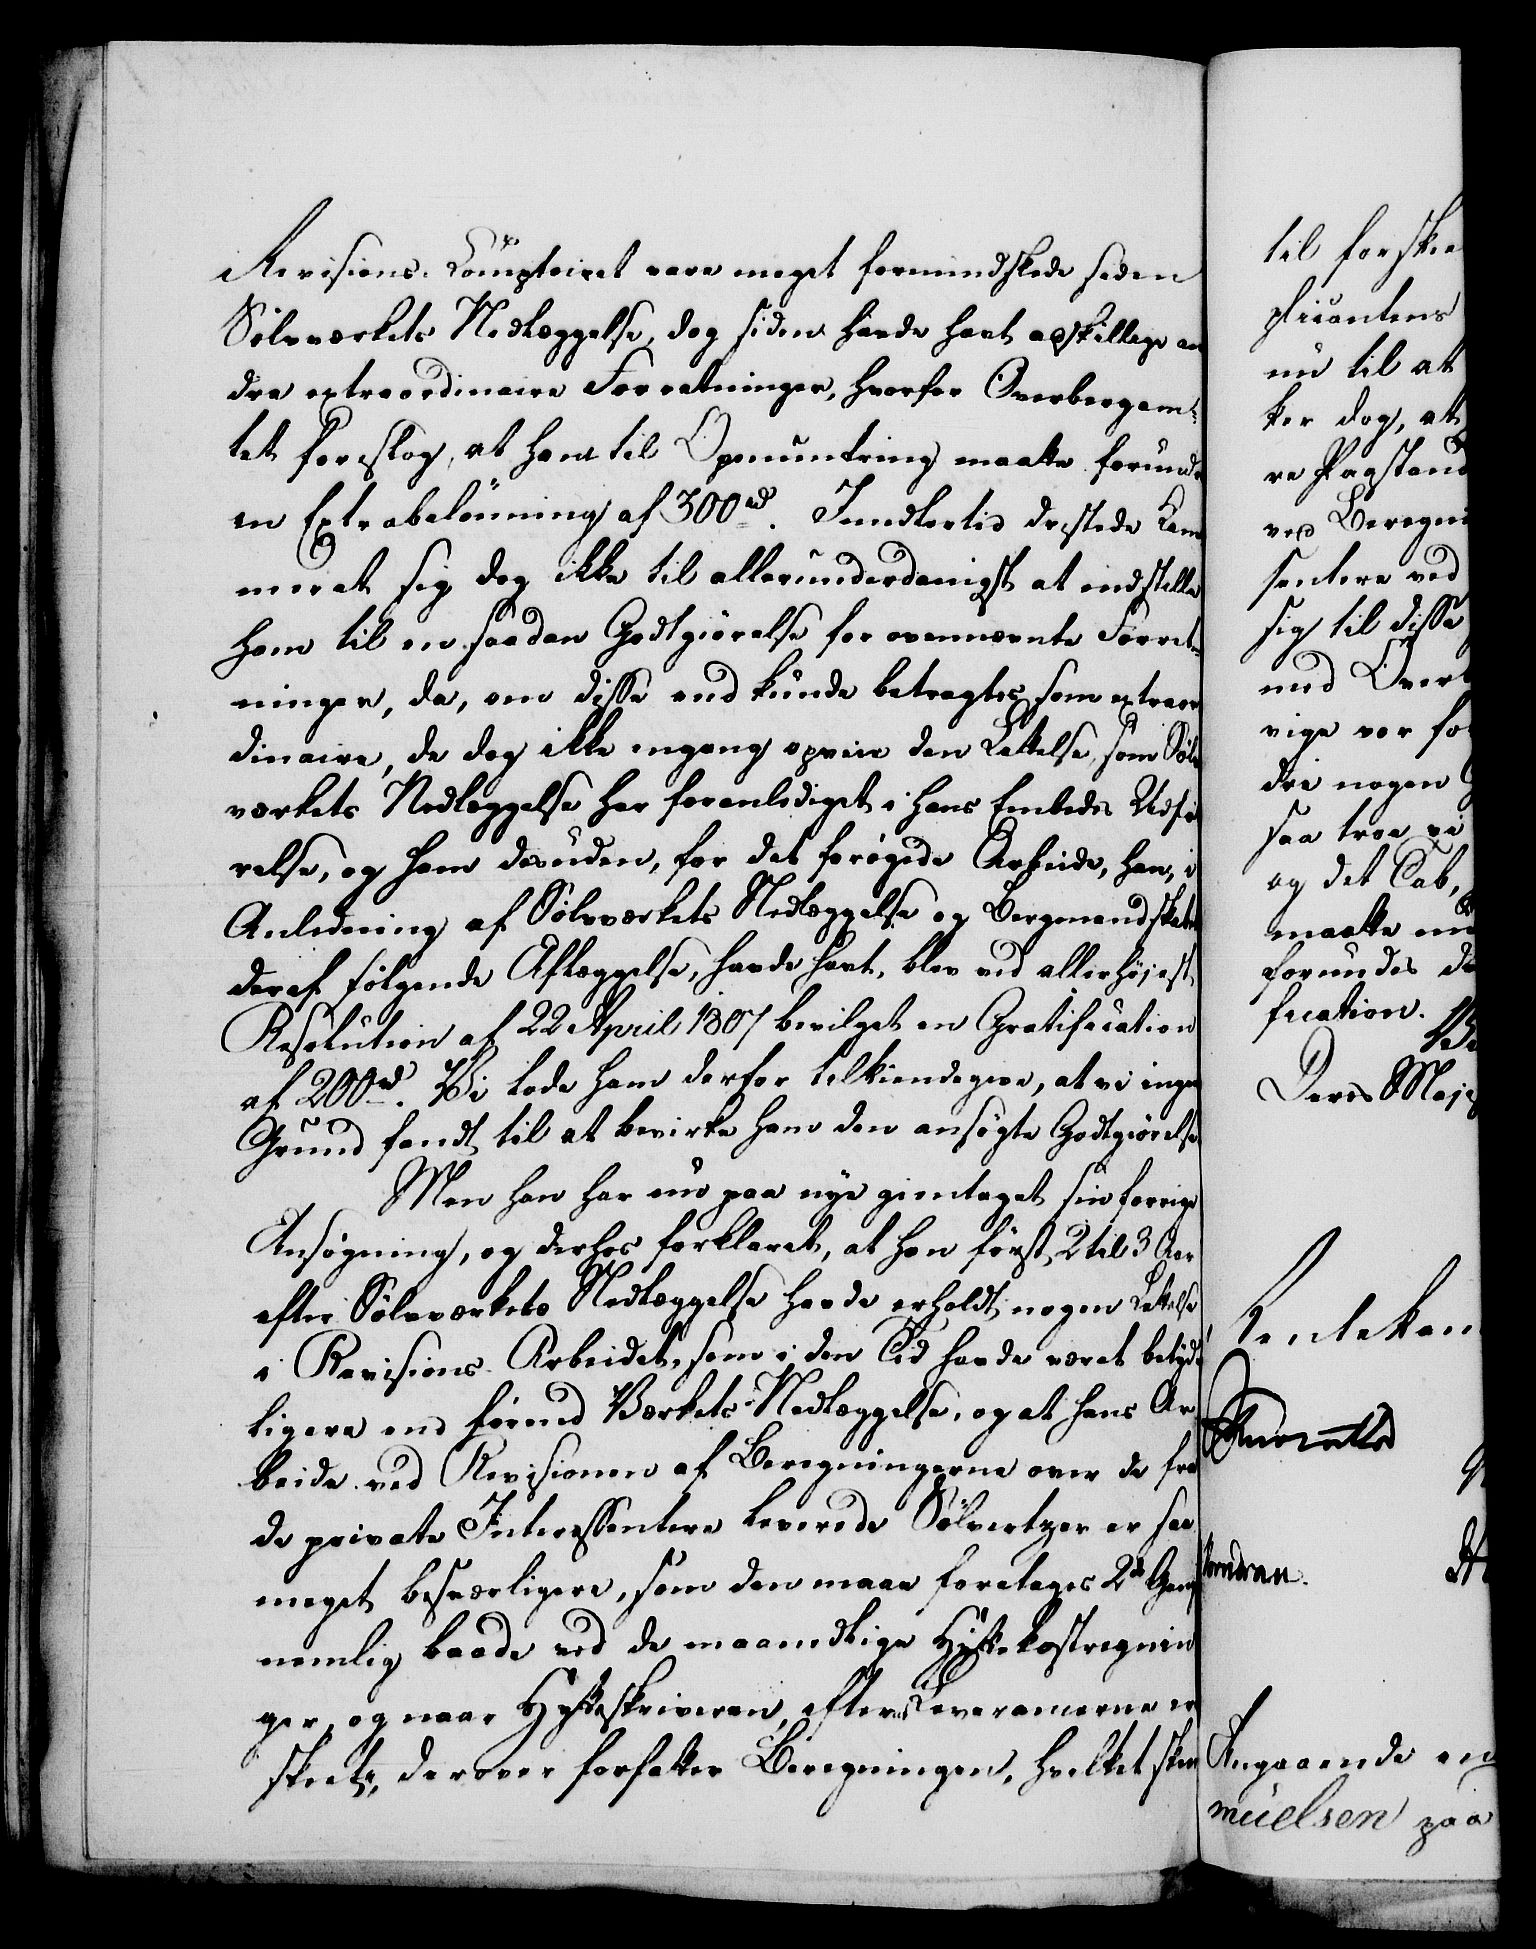 Revisions-Comptoiret vare meget formindskede siden
Sølvværkets Nedlæggelse, dog siden havde havt adskillige an
dre extraordinaire Forretninger, hvorfor Overbergam-
tet foreslog, at ham til Opmuntring maatte forundes
en Extrabelønning af 300 rd. Imidlertid dristede Kam
meret sig dog ikke til allerunderdanigst at indstille
ham til en saadan Godtgiørelse for ovennævnte Forret-
ninger, da, om disse end kunde betragtes som extraor
dinaire, de dog ikke engang opveie den Lettelse, som Sølv
værkets Nedlæggelse har foranlediget i hans Embedes Udfø
relse, og ham desuden, for det forøgede Arbeide, han, i
Anledning af Sølvværkets Nedlæggelse og Bergmandskabets
deraf følgende Aflæggelse, havde havt, blev ved allerhøjest
Resolution af 22 April 1807 bevilget en Gratification
af 200 rd. Vi lode ham derfor tilkiendegive, at vi ingen
Grund fandt til at bevirke ham den ansøgte Godtgiørelse
Men han har nu paa nye gientaget sin forrige
Ansøgning, og derhos forklaret, at han først 2 til 3 Aar
efter Sølvværkets Nedlæggelse havde erholdt nogen Lettelse
i Revisions-Arbeidet, som i den Tid havde været betyde
ligere end førend Værkets Nedlæggelse, og at hans Ar
beide ved Revisionen af Beregningerne over de fra
de private Interessentere leverede Sølvertzer er saa
meget besværligere, som den maae foretages 2de Gange
nemlig baade ved de maanedlige Hyttekostregnin
ger, og naar Hytteskriveren, efterat Leverancerne er
skeete, derover forfatter Beregningen, hvilket skeer
til forskie
plicantens
nu til at
ker dog, at
re Paastand
ved Beregni
sentere ved
sig til disse
med Overb
vige var fo
dri nogen G
saa troe vi
og det Tab,
maatte
forundes de
fication.
Deres Maje
Rentekam
Angaaende en
muelsen paa